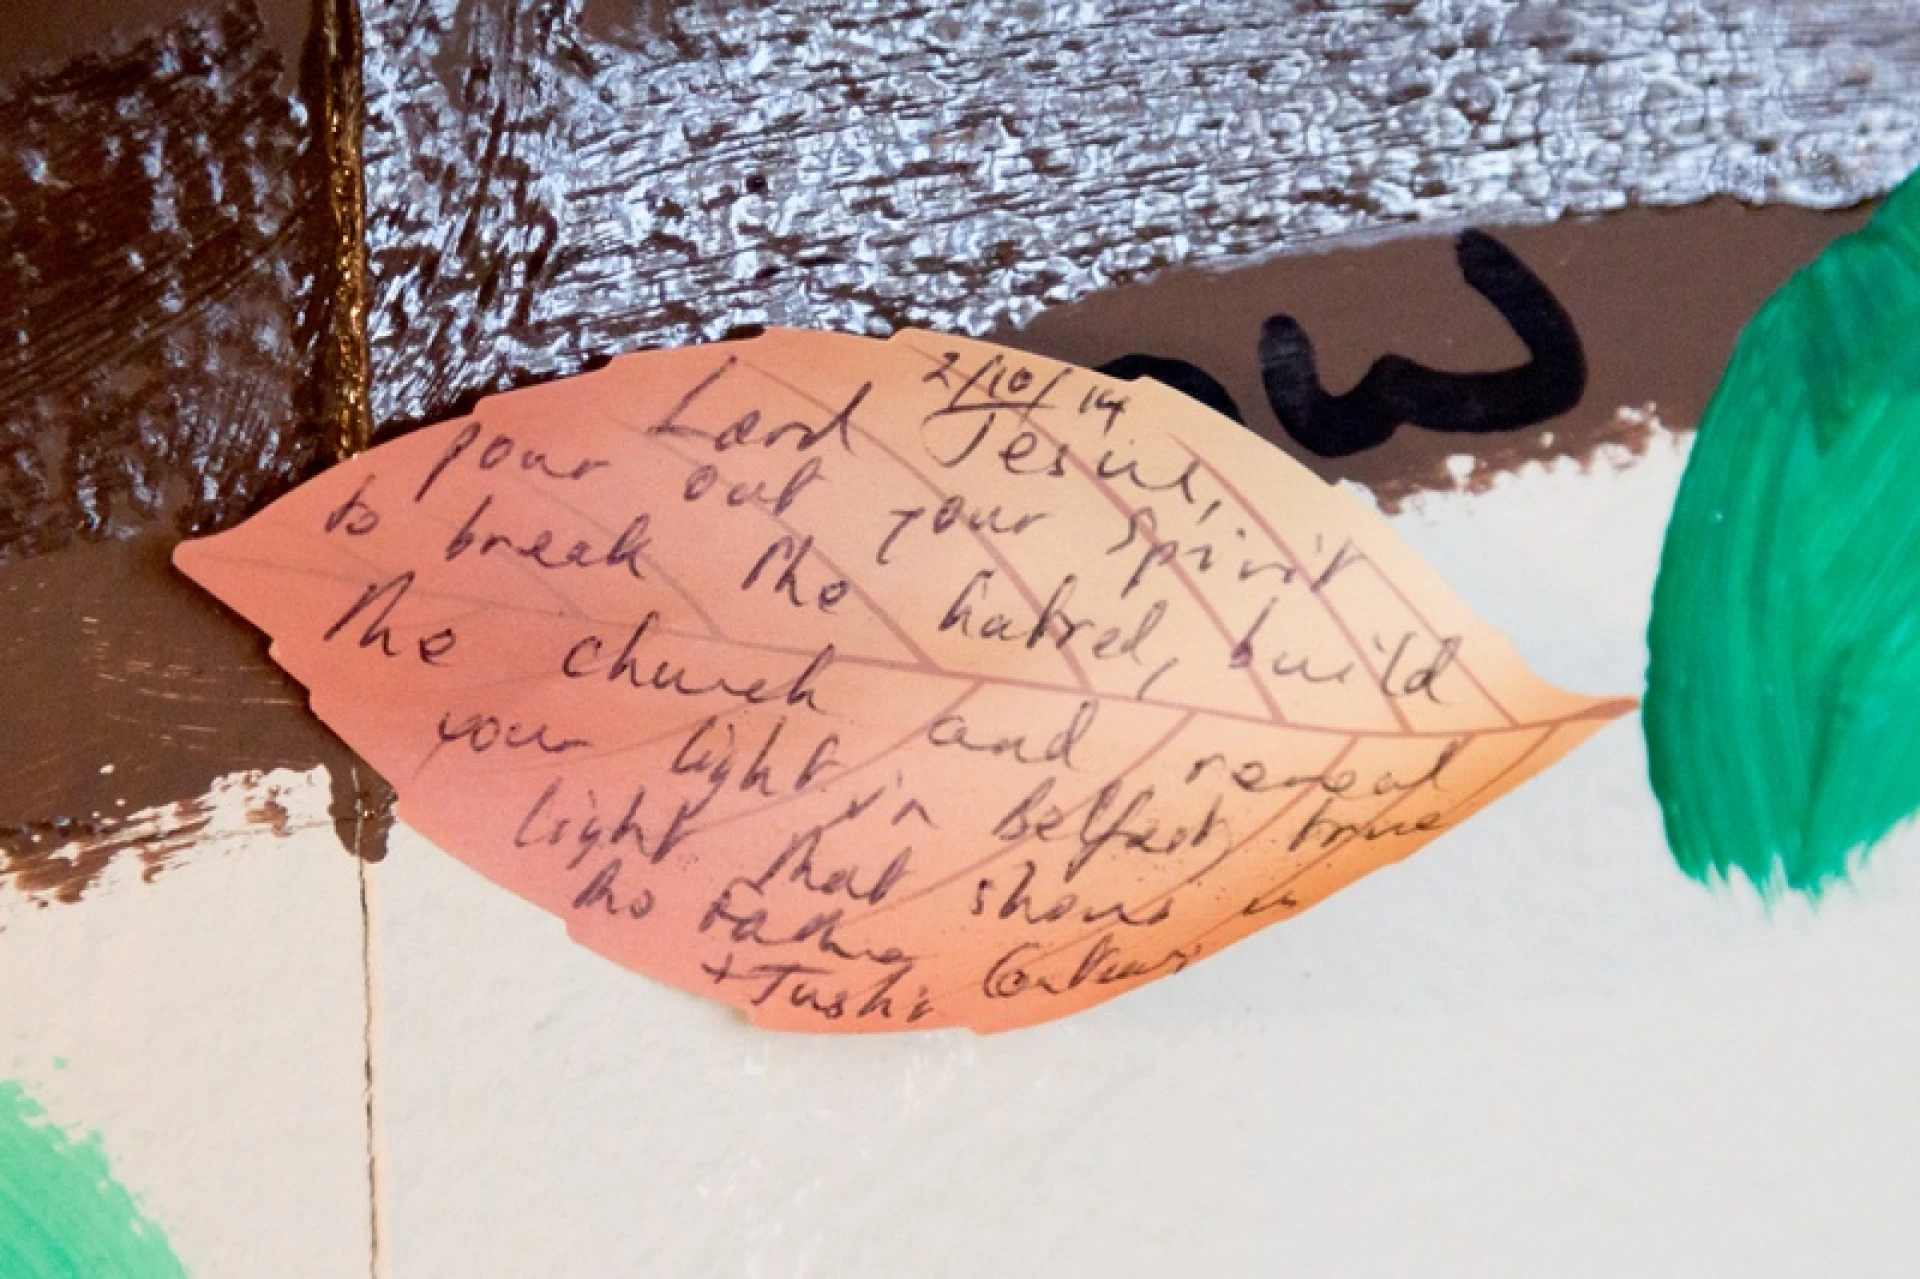 2/10/14
Lord Jesus,
pour out your Spirit
to break the hatred, build
the church and reveal
your light in Belfast, true
light that shows us
the Father
+ Tushi
w